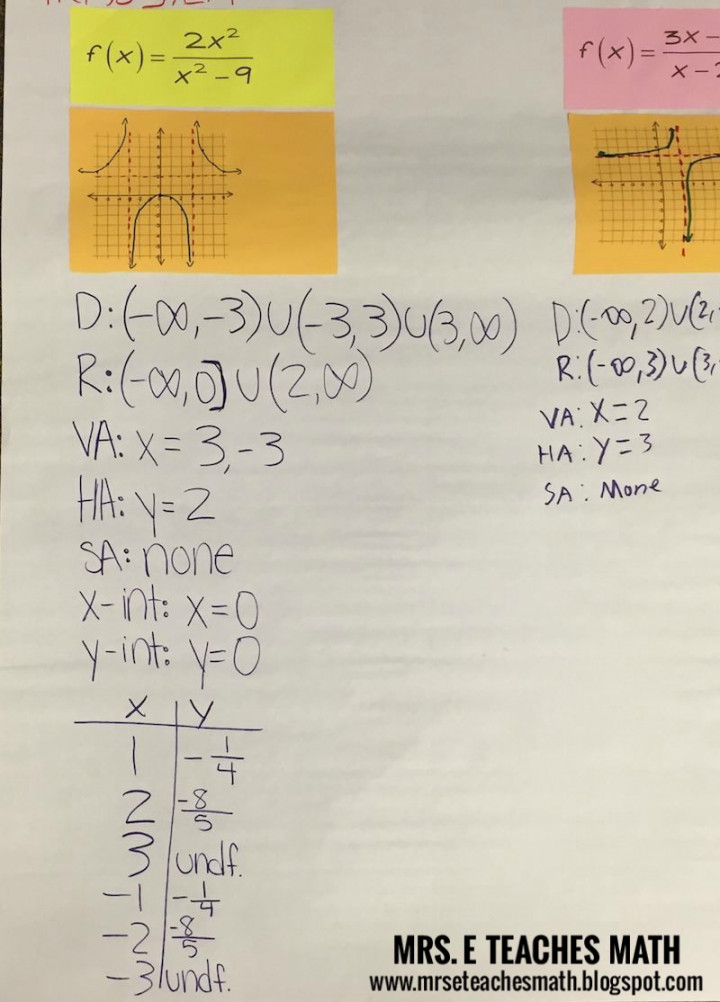 f(x) = 2x² / x² - 9
D: (-∞, -3) ∪ (-3, 3) ∪ (3, ∞)
R: (-∞, 0] ∪ (2, ∞)
VA: x = 3, -3
HA: y = 2
SA: none
x-int: x = 0
y-int: y = 0
x | y
1 | -1/4
2 | -8/5
3 | undf.
-1 | -1/4
-2 | -8/5
-3 | undf.
f(x) = 3x - / x -
D: (-∞, 2) ∪ (2,
R: (-∞, 3) ∪ (3,
VA: x = 2
HA: y = 3
SA: None
MRS. E TEACHES MATH
www.mrseteachesmath.blogspot.com